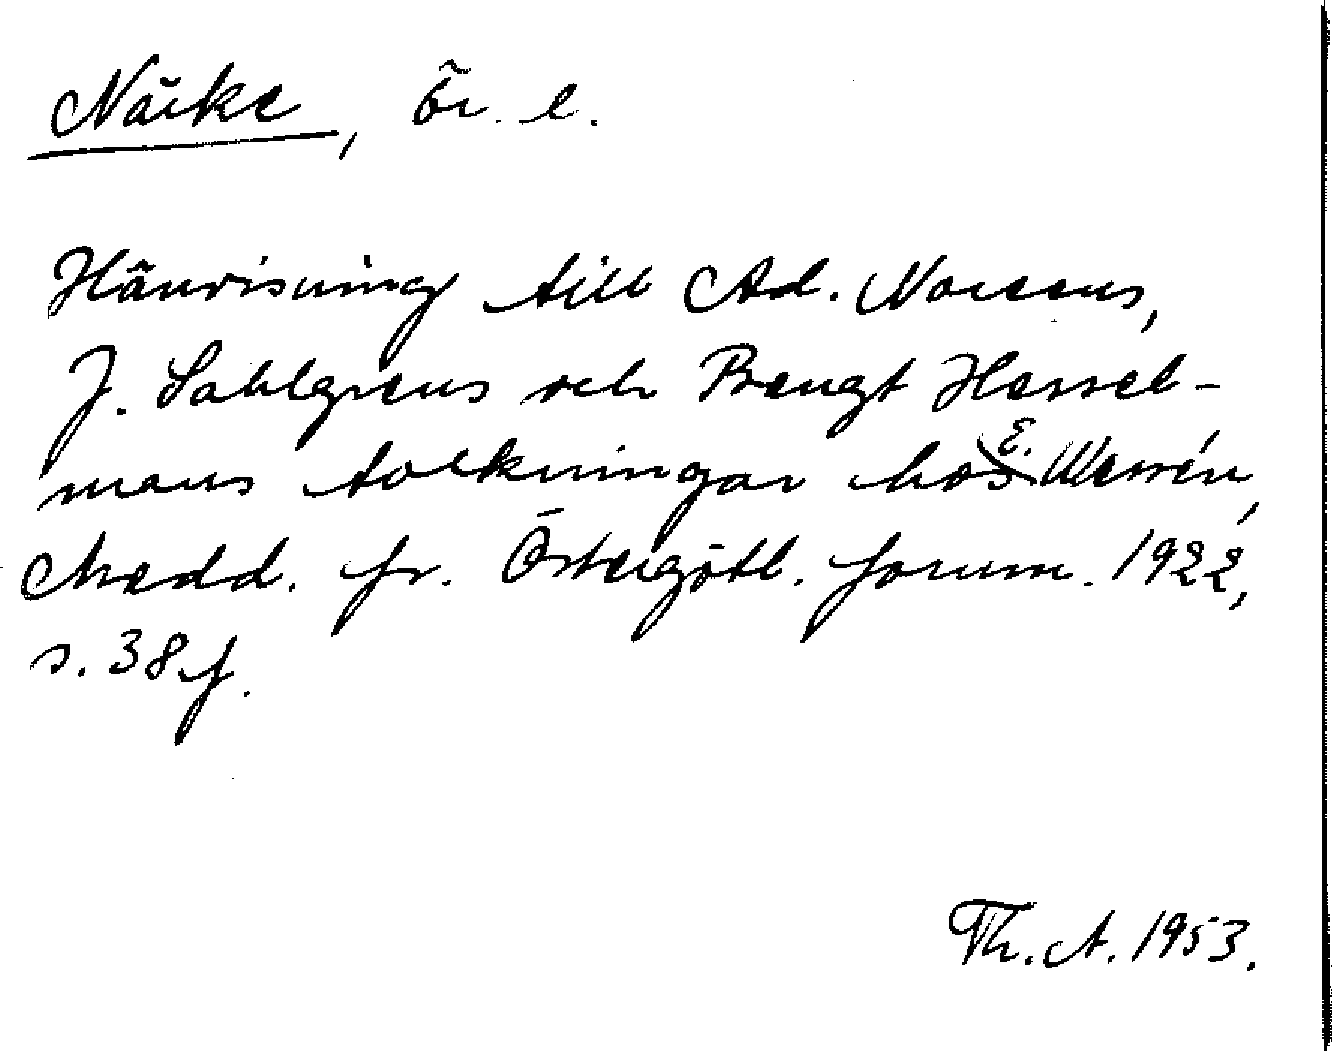 Närke, Ör. l.
Hänvisning till Ad. Noreens,
J. Sahlgrens och Bengt Hessel-
mans tolkningar hos E. Wessén,
Medd. fr. Östergötl. fornm. 1922,
s. 38 f.
Th. A. 1953.